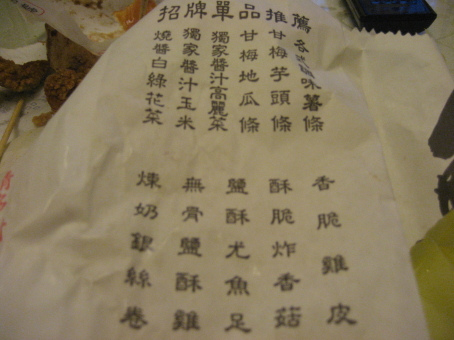 招牌單品推薦
味薯條
甘梅芋頭條
甘梅地瓜條
獨家醬汁高麗菜
獨家醬汁玉米
燒醬白綠花菜
香脆雞皮
酥脆炸香菇
鹽酥尤魚足
無骨鹽酥雞
煉奶銀絲卷